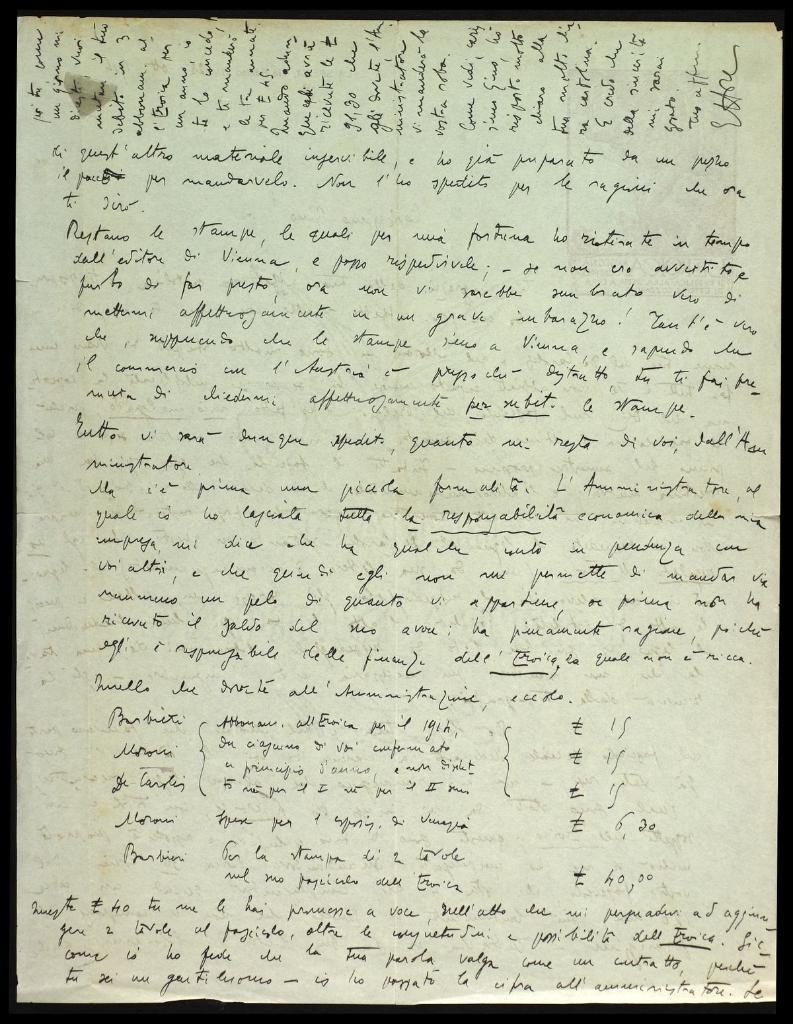 di quest'altro materiale inservibile, e ho già preparato da un pezzo
il pacco per mandarvelo. Non l'ho spedito per le ragioni che ora
ti dirò.
Restano le stampe, le quali per mia fortuna ho ritirate in tempo
dall'editore di Vienna, e posso rispedirvele; – se non ero avvertito e
furbo da far presto, ora non vi sarebbe sembrato vero di
mettermi affettuosamente in un grave imbarazzo! Tant'è vero
che, supponendo che le stampe sieno a Vienna, e sapendo che
il commercio con l'Austria è pressoché distrutto, tu ti fai pre-
mura di chiedermi affettuosamente per subito le stampe.
Tutto vi sarà dunque spedito, quanto mi resta di voi, dall'Am
ministratore.
Ma c'è prima una piccola formalità. L'Amministratore, al
quale io ho lasciata tutta la responsabilità economica della mia
impresa, mi dice che ha qualche conto in pendenza con
voi altri, e che quindi egli non mi permette di mandar via
nemmeno un pelo di quanto vi appartiene, se prima non ha
ricevuto il saldo del suo avere; ha pienamente ragione, poiché
egli è responsabile delle finanze dell'Eroica, la quale non è ricca.
Quello che dovete all'Amministrazione, eccolo.
Barbieri { Abbonam. all'Eroica per il 1914, } £ 15
Moroni da ciascuno di voi confermato £ 15
De Carolis a principio d'anno, e non disdet- £ 15
to né per il I né per il II sem
Moroni Spese per l'esposiz. di Venezia £ 6,30
Barbieri Per la stampa di 2 tavole
nel suo fascicolo dell'Eroica £ 40,00
Queste £ 40 tu me le hai promesse a voce, nell'atto che mi persuadevi ad aggiun-
gere 2 tavole al fascicolo, oltre le consuetudini e possibilità dell'Eroica. Sic-
come io ho fede che la tua parola valga come un contratto, perché
tu sei un gentiluomo – io ho passato la cifra all'amministratore. Se
poi tu come
un giorno mi
dicesti, vuoi
mutare il tuo
debito in 3
abbonam. al-
l'Eroica per
un anno, io
te lo concedo
e ti manderò
le tre annate
per £ 45.
Quando adun-
que egli avrà
ricevute le £
91,30 che
gli dovete l'Am-
ministratore
vi manderà la
vostra roba.
Come vedi, caris-
simo Gino, ho
risposto molto
chiaro alla
tua molto di-
ra cartolina.
E credo che
della sincerità
mi sarai
grato.
Tuo affmo.
Ettore